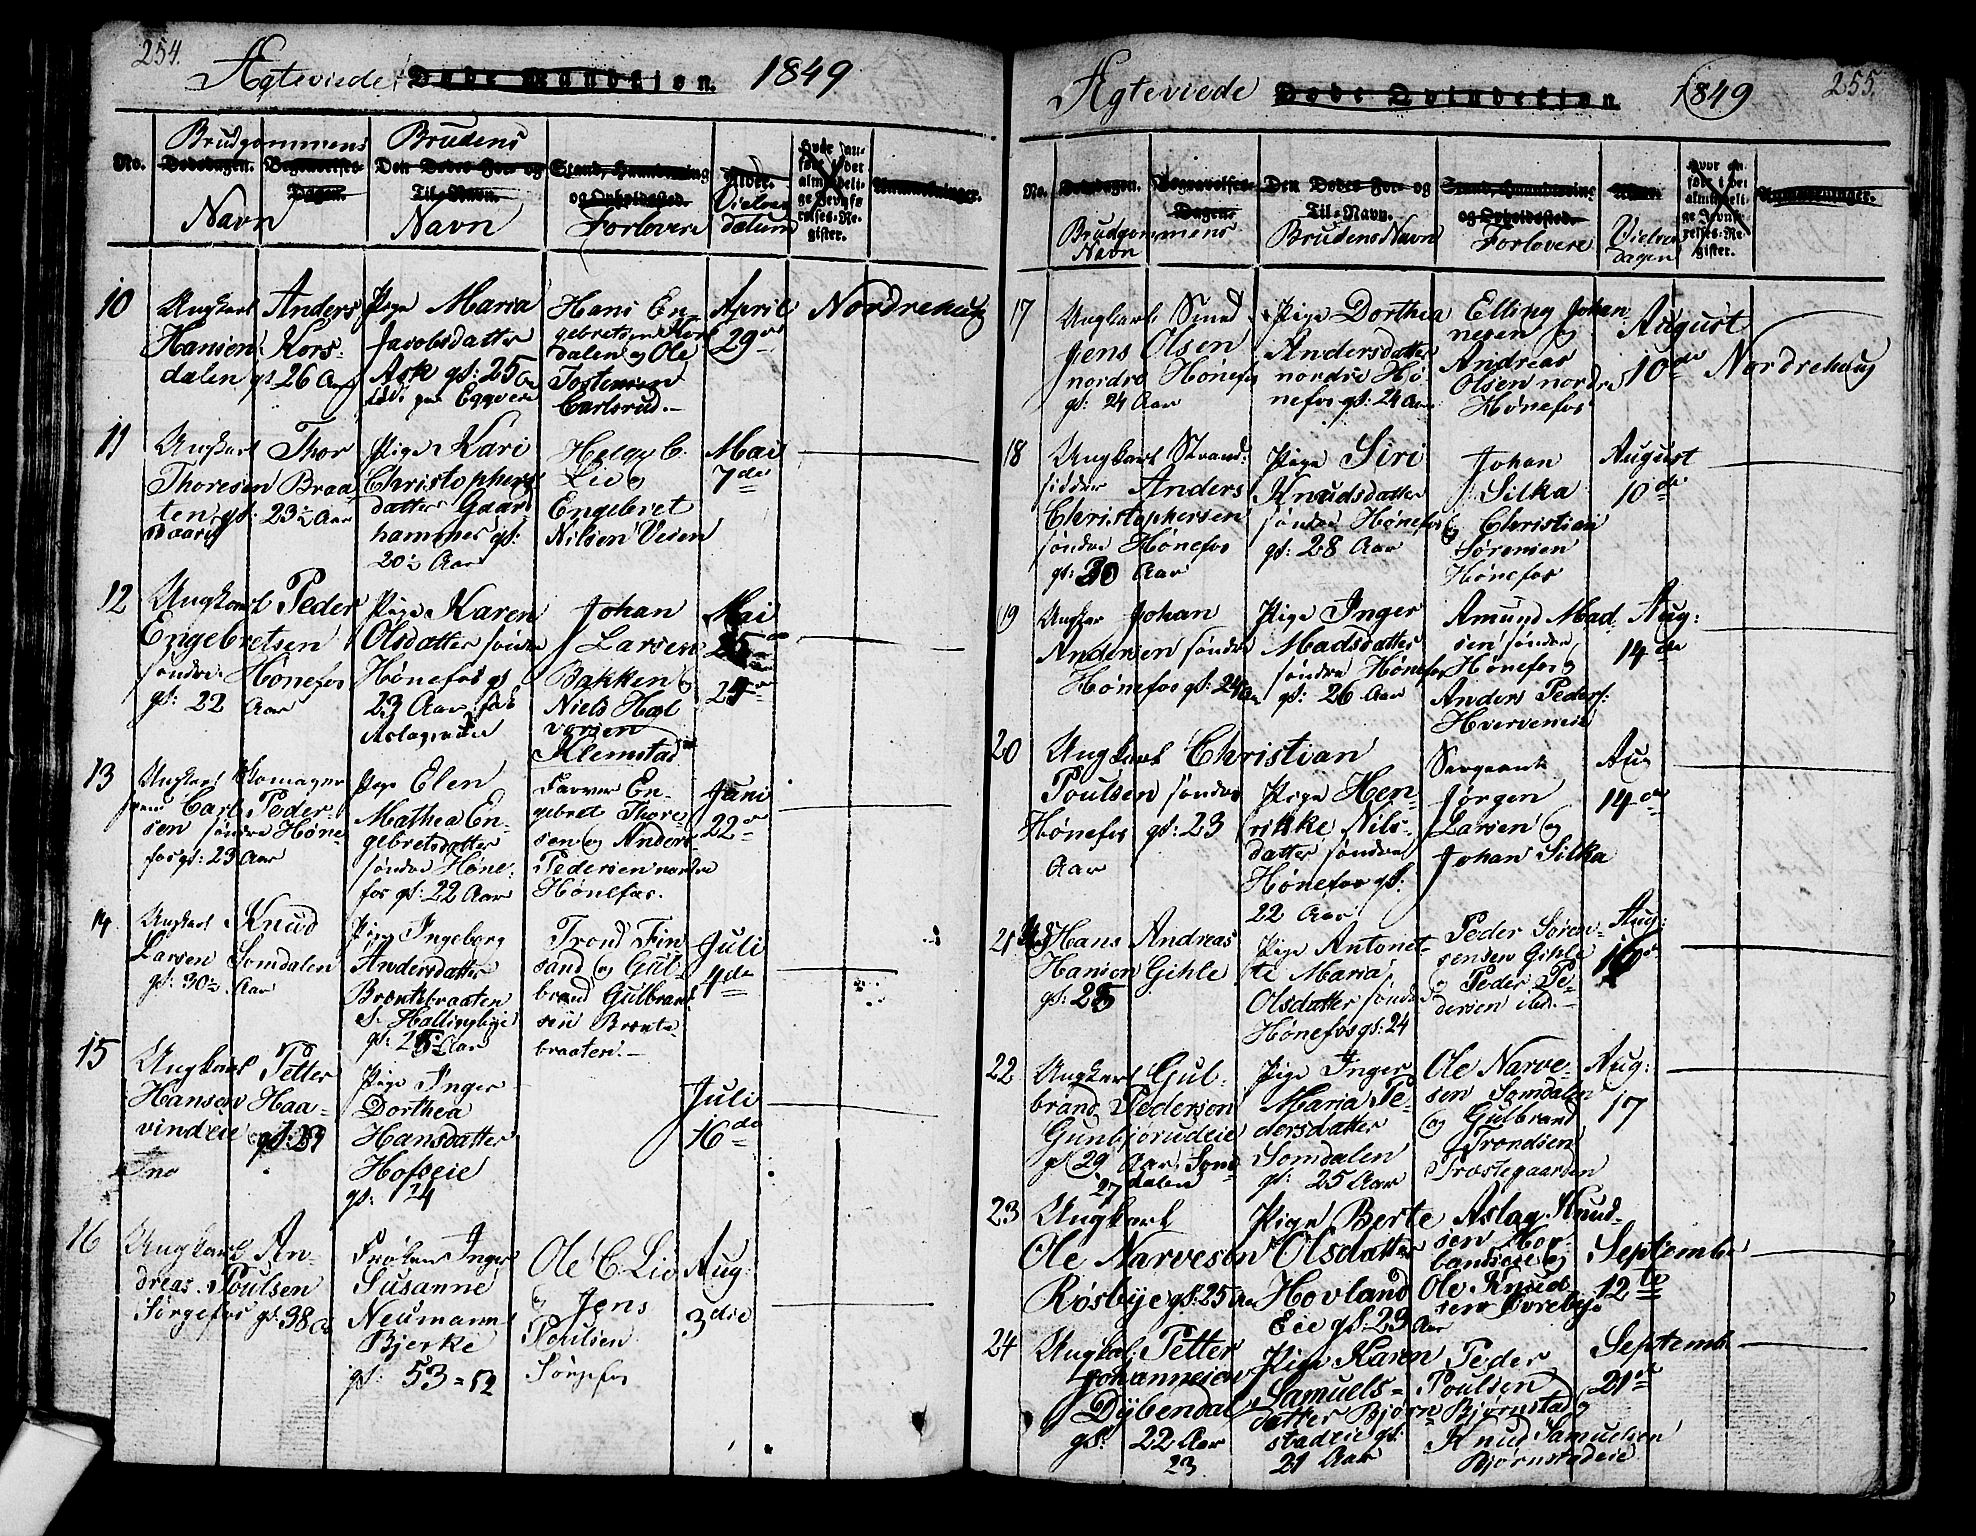 254.
Ægteviede Døde Mandkiøn. 1849
No.
Brudgommens
Dødsdagen. Begravelses-
Dagen.
Navn
Brudens
Den Dødes For- og
Til-Navn.
Navn
Stand, Haandtering
og Opholdsted.
Forlovere
Alder.
Vielses
datum
Hvor an-
ført i det
almindeli-
ge Jevnfø-
relses-Re-
gister.
Anmerkninger.
10
Ungkarl Anders
Hansen Kors-
dalen gl. 26 Aar
Pige Maria
Jacobsdatter
Ask gl: 25 Aar
Hans En-
gebretsen Kors
dalen og Ole
Tostensen
Carlsrud.
April
29de
Nordrehaug
11
Ungkarl Thor
Thoresen Braa-
ten gl: 23½ Aar
Pige Kari
Christophers
datter Gaar
hammer gl:
20½ Aar
Helge C.
Lie og
Engebret
Nilsen Veien
Mai
7de
12
Ungkarl Peder
Engebretsen
søndre Hønefos
gl: 22 Aar
Pige Karen
Olsdatter søndre
Hønefos gl
23 Aar
Johan
Larsen
Bakken og
Niels Hal
vorsen
Klemstad
Mai
25
13
Ungkarl Skomager
svend Carl Peder-
sen søndre Høne
fos gl: 23 Aar
Pige Elen
Mathea En-
gebretsdatter
søndre Høne-
fos gl: 22 Aar
Farver En-
gebret Thore-
sen og Anders
Pedersen nordre
Hønefos.
Juni
22de
14
Ungkarl Knud
Larsen Somdalen
gl: 30½ Aar
Pige Ingeborg
Andersdatter
Brænkbraaten
S. Hallingbye
gl: 25½ Aar
Trond Fin
sand og Gul-
brand Gulbrand
sen Brænke
braaten.
Juli
4de
15
Ungkarl Petter
Hansen Haa-
vindeie gl: 29
Pige Inger
Dorthea
Hansdatter
Hofseie
gl: 24
Juli
16de
16
Ungkarl An-
dreas Poulsen
Sørgefos gl: 38 Aar
Frøken Inger
Susanne
Neumann
Bjerke
gl: 53 = 52
Ole C. Lie
og Jens
Poulsen
Sørgefos
Aug:
3die
Ægteviede Døde Qvindekiøn 1849 255.
No.
Dødsdagen. Begravelses-
Dagen.
Brudgommens
Navn
Den Dødes For- og
Til-Navn.
Brudens Navn
Stand, Haandtering
og Opholdsted.
Forlovere
Alder.
Vielses
dagen
Hvor an-
ført i det
almindeli-
ge Jevnfø-
relses-Re-
gister.
Anmerkninger.
17
Ungkarl Smed
Jens Olsen
nordre Hønefos
gl: 24 Aar
Pige Dorthea
Andersdatter
nordre Hø
nefos gl: 24 Aar
Elling Johan
nesen og
Andreas
Olsen nordre
Hønefos
August
10de
Nordrehaug
18
Ungkarl Strand-
sidder Anders
Christophersen
søndre Hønefos
gl: 30 Aar
Pige Siri
Knudsdatter
søndre Hønefos
gl: 28 Aar
Johan
Silka
og Christian
Sørensen
Hønefos
August
10de
19
Ungkar Johan
Andersen søndre
Hønefos gl: 24 Aar
Pige Inger
Madsdatter
søndre Hønefos
gl: 26 Aar
Amund Mad-
sen søndre
Hønefos og
Anders Peders:
Hvervenseie
Aug:
14de
20
Ungkarl Christian
Poulsen søndre
Hønefos gl: 23
Aar
Pige Hen-
rikke Nils-
datter søndre
Hønefos gl:
22 Aar
Sergeant
Jørgen
Larsen og
Johan Silka
Aug
14de
21
Hans Andreas
Hansen Gihle
gl: 25
Pige Antonet-
te Maria
Olsdatter søndre
Hønefos gl: 24
Peder Søren-
sensen Gihle
og Peder Pe-
dersen ibd.
Aug:
16de
22
Ungkarl Gul-
brand Pedersen
Gunbjørudeie
gl 29 Aar Som-
27 dalen
Pige Inger
Maria Pe-
dersdatter
Somdalen
gl: 25 Aar
Ole Narve-
sen Somdalen
og Gulbrand
Trondsen
Trøstegaarden
Aug:
17
23
Ungkarl
Ole Narvesen
Røsbye gl: 25 Aar
Pige Berte
Olsdatter
Hovland
Eie gl: 23 Aar
Aslag Knud-
sen Hov-
landseie og
Ole Knud
sen Øvrebye
Septembe
12te
24
Ungkal Petter
Johannesen
Dybendal
gl: 22 Aar
23
Pige Karen
Samuels-
datter Bjørn-
stadeie gl:
21 Aar
Peder
Poulsen
Bjørnstad og
Knud Samuelsen
Bjørnstadeie
Septemb
21de